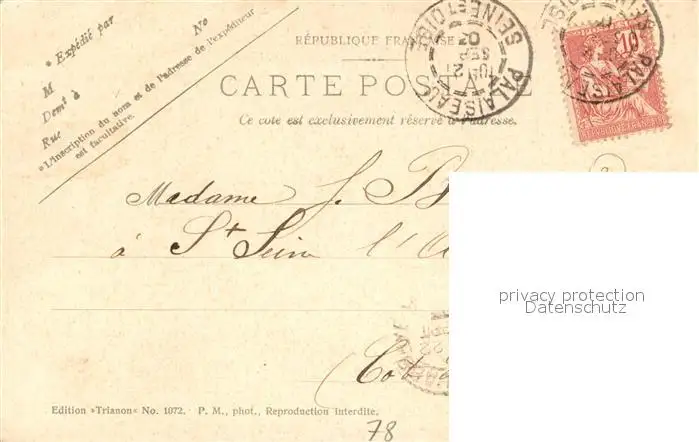 * Expédié par
No
M
Demt à
Rue
*L'inscription du nom et de l'adresse de l'expéditeur
est facultative.
RÉPUBLIQUE FRANÇAISE
CARTE POS E
Ce côté est exclusivement réservé à l'adresse.
PALAISEAU
SEINE ET OISE
21
02
10
PALAISEAU
REPUBLIQUE FRANÇAISE
Madame J. B
à St Seine l'A
(Cot
privacy protection
Datenschutz
Edition »Trianon« No. 1072. P. M., phot., Reproduction interdite.
78